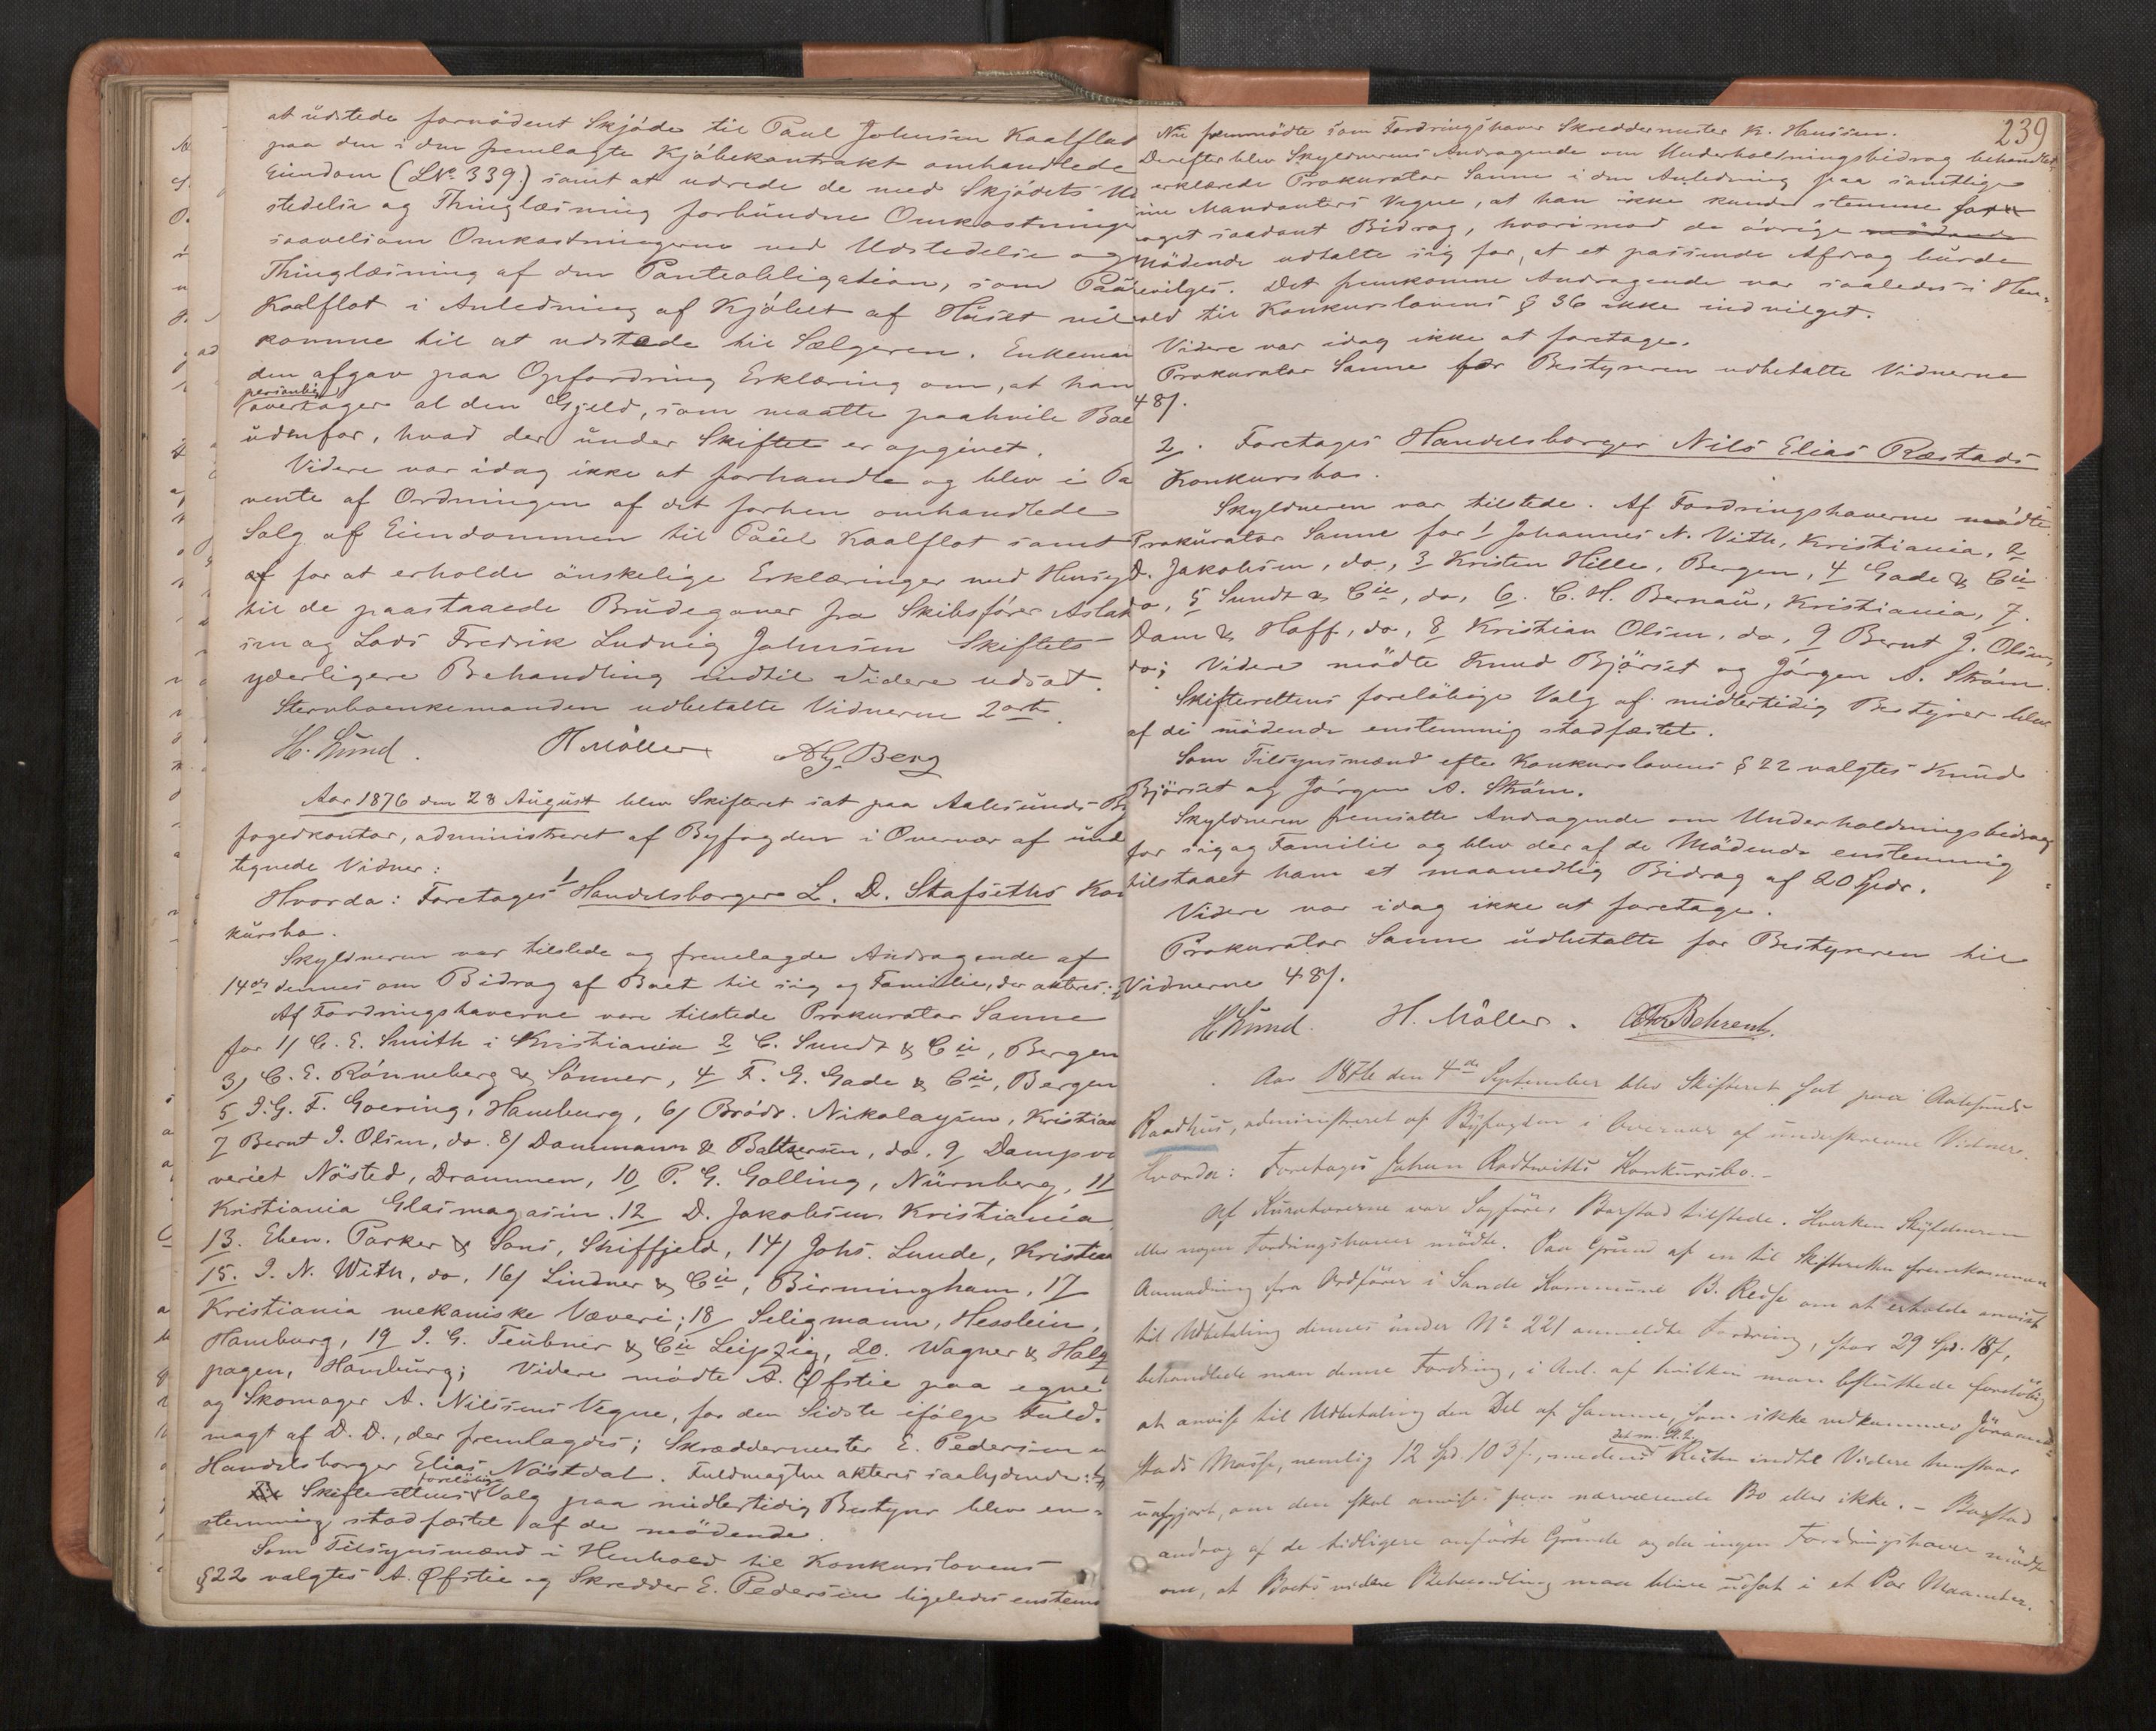 at udstede fornødent Skjøde til Paul Johnsen Kaalflot
paa den i den fremlagte Kjøbekontrakt omhandlede
Eiendom (LNo 339.) samt at udrede de med Skjødets Ud
stedelse og Thinglæsning forbundne Omkostninger
saavelsom Omkostningerne ved Udstedelse og
Thinglæsning af den Panteobligation, som Paul
Kaalflot i Anledning af Kjøbet af Huset vil
komme til at udstede til Sælgeren. Enkeman
den afgav paa Opfordring Erklæring om, at han
personlig
overtager al den Gjeld, som maatte paahvile Boe
udenfor, hvad der under Skiftet er opgivet.
Videre var idag ikke at forhandle og blev i Pa
vente af Ordningen af det forhen omhandlede
Salg af Eiendommen til Paul Kaalflot samt
for at erholde ønskelige Erklæringer med Hensyn
til de paastaaede Brudegaver fra Skibsfører Aslak
sen og Lods Fredrik Ludvig Johnsen Skiftets
yderligere Behandling indtil Videre udsat.
Stervboenkemanden udbetalte Vidnerne 2 ort.
H. Lund. H Møller A. G. Berg
Aar 1876 den 28 August blev Skifteret sat paa Aalesunds By
fogedkontor, administreret af Byfogden i Overvær af und
tegnede Vidner:
Hvorda: Foretages 1/ Handelsborger L. D. Stafseths Kon
kursbo.
Skyldneren var tilstede og fremlagde Andragende af
14de dennes om Bidrag af Boet til sig og Familie, der akteres:
Af Fordringshaverne vare tilstede Prokurator Sanne
for 1/ C. E. Smith i Kristiania 2 C. Sundt & Cie, Bergen
3/ C. E. Rønneberg & Sønner, 4 F. G. Gade & Cie, Bergen
5 I. G. F. Goering, Hamburg, 6/ Brødr. Nikolaysen, Kristian
7 Bernt I. Olsen, do. 8/ Dammann & Baltzersen, do. 9 Dampvæ
veriet Nøsted, Drammen, 10 P. G. Golling, Nürnberg, 11
Kristiania Glasmagasin. 12 D. Jakobsen Kristiania
13. Eben. Parker & Sons, Shiffjeld, 14/ Johs. Lunde, Kristian
15. I. N. With, do, 16/ Lindner & Cie, Birmingham, 17
Kristiania mekaniske Væveri; 18 Seligmann, Hesslein,
Hamburg, 19 I. G. Teubner & Cie Leipzig, 20. Wagner & Halz
pagen, Hamburg; Videre mødte A. Øfstie paa egne
og Skomager A. Nilssens Vegne, for den Sidste ifølge Fuld-
magt af D. D., der fremlagdes; Skræddermester E. Pedersen
Handelsborger Elias Nøstdal. Fuldmagten akteres saalydende:
foreløbige
Skifterettens Valg paa midlertidig Bestyrer blev en-
stemmig stadfæstet af de mødende.
Som Tilsynsmænd i Henhold til Konkurslovens
§22 valgtes A. Øfstie og Skredder E. Pedersen ligeledes enstem
239
Nu fremmødte som Fordringshaver Skreddermester K. Hanssen.
Derefter blev Skyldnerens Andragende om Underholdningsbidrag behandlet
erklærede Prokurator Sanne i den Anledning paa samtlige
sine Mandanters Vegne, at han ikke kunde stemme for
noget saadant Bidrag, hvorimod de øvrige mødende
Mødende udtalte sig for, at et passende Afdrag burde
bevilges. Det fremkomne Andragende var saaledes i Hen-
hold til Konkurslovens § 36 ikke indvilget.
Videre var idag ikke at foretage.
Prokurator Sanne for Bestyreren udbetalte Vidnerne
48/.
2/. Foretages Handelsborger Nils Elias Ræstads
Konkursbo.
Skyldneren var tilstede. Af Fordringshaverne mødte
Prokurator Sanne for 1 Johannes N. With, Kristiania, 2
D. Jakobsen, do, 3 Kristen Hille, Bergen, 4 Gade & Cie
do, 5 Sundt & Cie, do, 6. C. H. Bernau, Kristiania, 7.
Dam & Hoff, do, 8 Kristian Olsen, do, 9 Bernt J. Olsen,
do; Videre mødte Knud Bjørset og Jørgen A. Strøm.
Skifterettens foreløbige Valg af midlertidig Bestyrer blev
af de mødende enstemmig stadfæstet.
Som Tilsynsmænd efter Konkurslovens § 22 valgtes Knud
Bjørset og Jørgen A. Strøm.
Skyldneren fremsatte Andragende om Underholdningsbidrag
for sig og Familie og blev der af de Mødende enstemmig
tilstaaet ham et maanedlig Bidrag af 20 Spdr.
Videre var idag ikke at foretage.
Prokurator Sanne udbetalte for Bestyreren til
Vidnerne 48/.
H Lund. H. Møller. Behrents.
Aar 1876 den 4de September blev Skifteret sat paa Aalesunds
Raadhus, administreret af Byfogden i Overvær af underskrevne Vidner.
Hvorda: Foretages Johan Rodtwitts Konkursbo.-
Af Kuratorerne var Sagfører Barstad tilstede. Hverken Skyldneren
eller nogen Fordringshaver mødte. Paa Grund af en til Skifteretten fremkommen
Anmodning fra Ordfører i Sande Kommune B. Reise om at erholde anvist
til Udbetaling dennes under No 221 anmeldte Fordring, stor 29 Spd. 18/,
behandlede man denne Fordring, i Anl. af hvilken man besluttede foreløbig
at anvise til Udbetaling den Del af samme, som ikke vedkommer
stads Masse, nemlig 12 Spd. 103/, medens Resten indtil Videre henstaar
uafgjort, om den skal anvises paa nærværende Bo eller ikke. - Barstad
androg af de tidligere anførte Grunde og da ingen Fordringshaver mødte
om, at Boets videre Behandling maa blive udsat i et Par Maaneder.